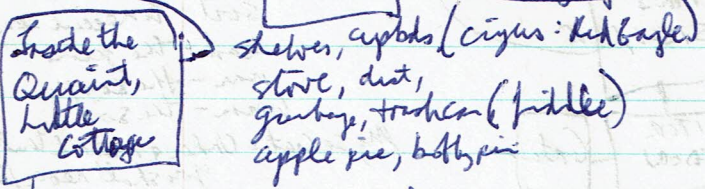 Inside the
Quaint,
Little
Cottage
shelves, cupbds (cigars: Red Eagle)
stove, dust,
garbage, trashcan (fiddle)
apple pie, bobby pin